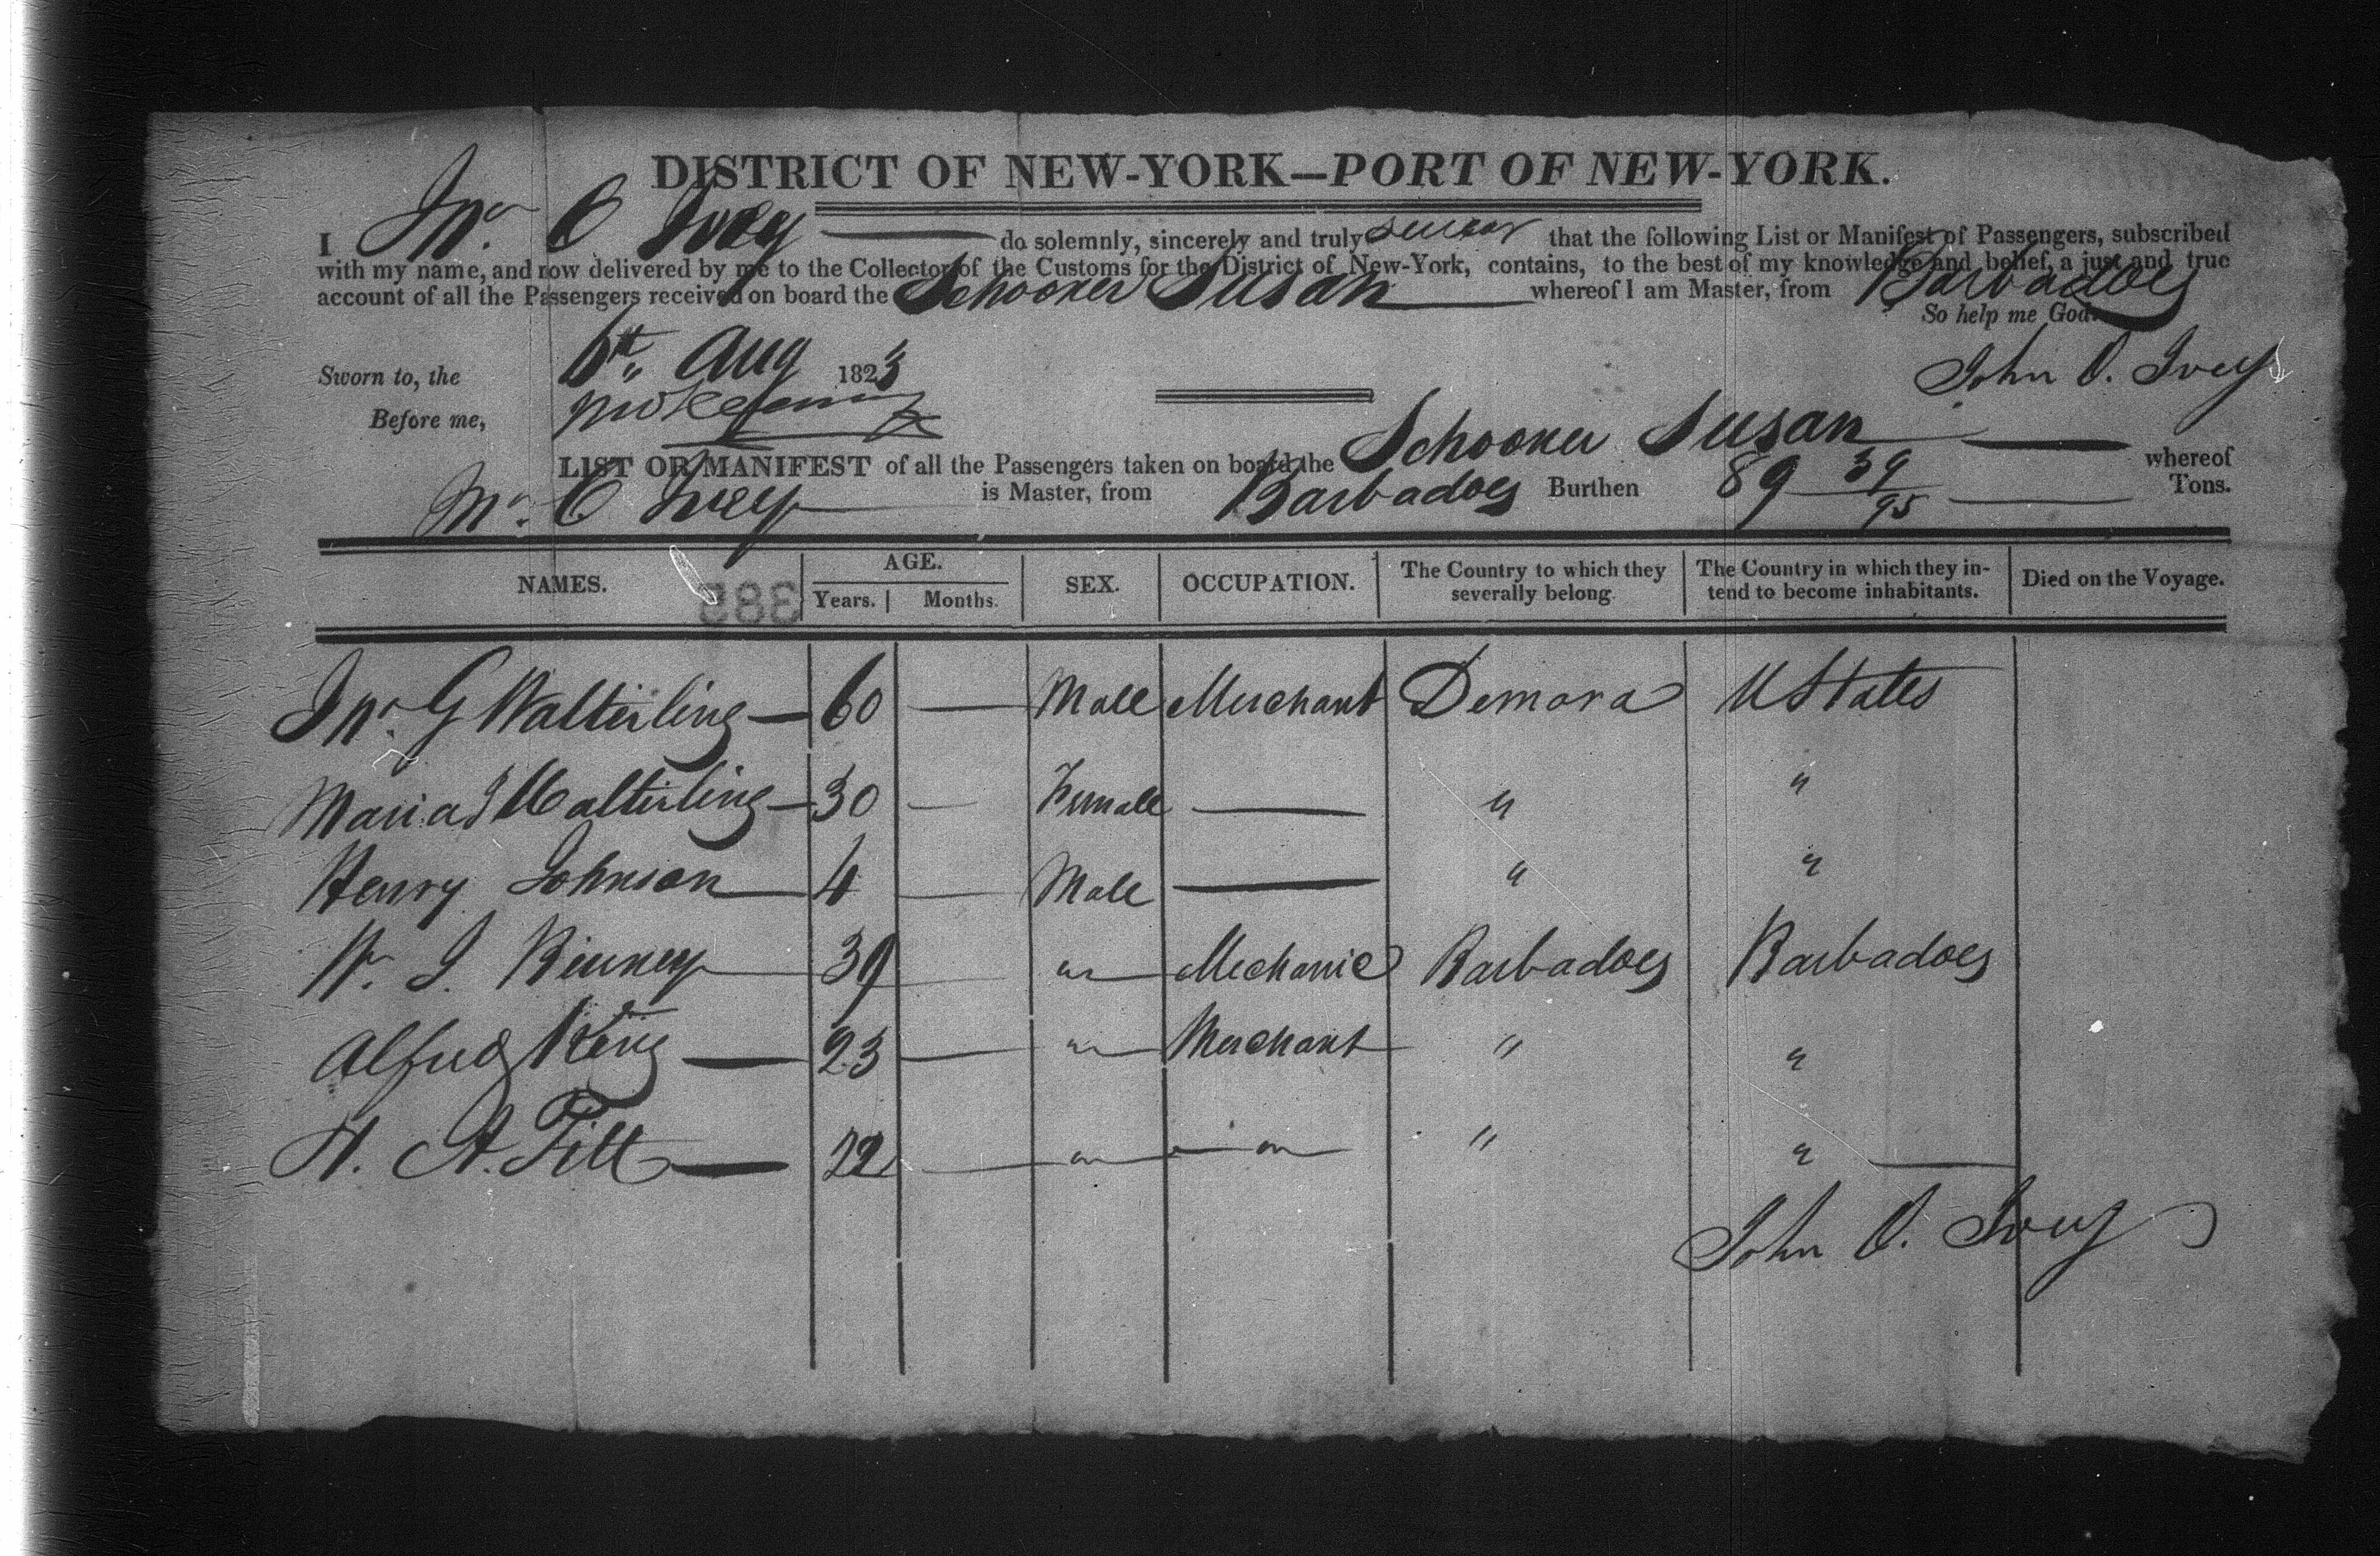 DISTRICT OF NEW-YORK—PORT OF NEW-YORK.
I Jnº O Ivey do solemnly, sincerely and truly swear that the following List or Manifest of Passengers, subscribed
with my name, and now delivered by me to the Collector of the Customs for the District of New-York, contains, to the best of my knowledge and belief, a just and true
account of all the Passengers received on board the Schooner Susan whereof I am Master, from Barbadoes
So help me God.
Sworn to, the 6th Aug 1823
John O. Ivey
Before me,
LIST OR MANIFEST of all the Passengers taken on board the Schooner Susan whereof
O Ivey is Master, from Barbadoes Burthen 89 39/95 Tons.
NAMES. AGE. Years. Months. SEX. OCCUPATION. The Country to which they severally belong. The Country in which they intend to become inhabitants. Died on the Voyage.
383
Jnº G Walterling — 60 — Male Merchant Demara U States
Maria J Walterling — 30 — Female — " "
Henry Johnson — 4 — Male — " "
Wm J. Binney — 39 — " — Mechanic Barbadoes Barbadoes
Alfred King — 23 — " — Merchant " "
H. A. Fitt — 22 — " — " — " " —
John O. Ivey